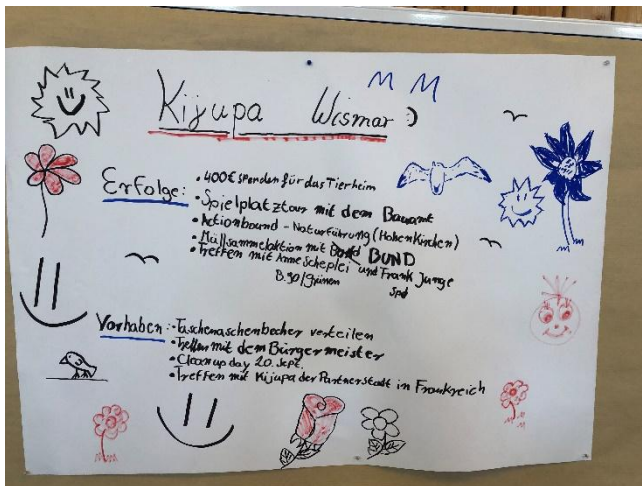 Kijupa Wismar :)
Erfolge:
• 400€ spenden für das Tierheim
• Spielplatztour mit dem Bauamt
• Actionbound - Naturführung (Hohenkirchen)
• Müllsammelaktion mit BUND
• Treffen mit Anne Scheplei und Frank Junge
B.90/Grünen Spd
Vorhaben:
• Taschenaschenbecher verteilen
• Treffen mit dem Bürgermeister
• Cleanup day 20. Sept.
• Treffen mit Kijupa der Partnerstadt in Frankreich